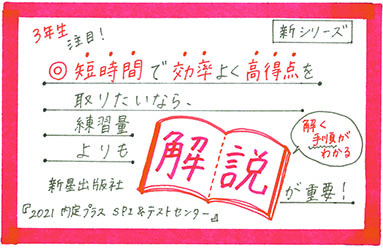 新シリーズ
3年生
注目!
◎短時間で効率よく高得点を
取りたいなら、
練習量
よりも
解説
解く
手順が
わかる
が重要!
新星出版社
『2021 内定プラス SPI&テストセンター』